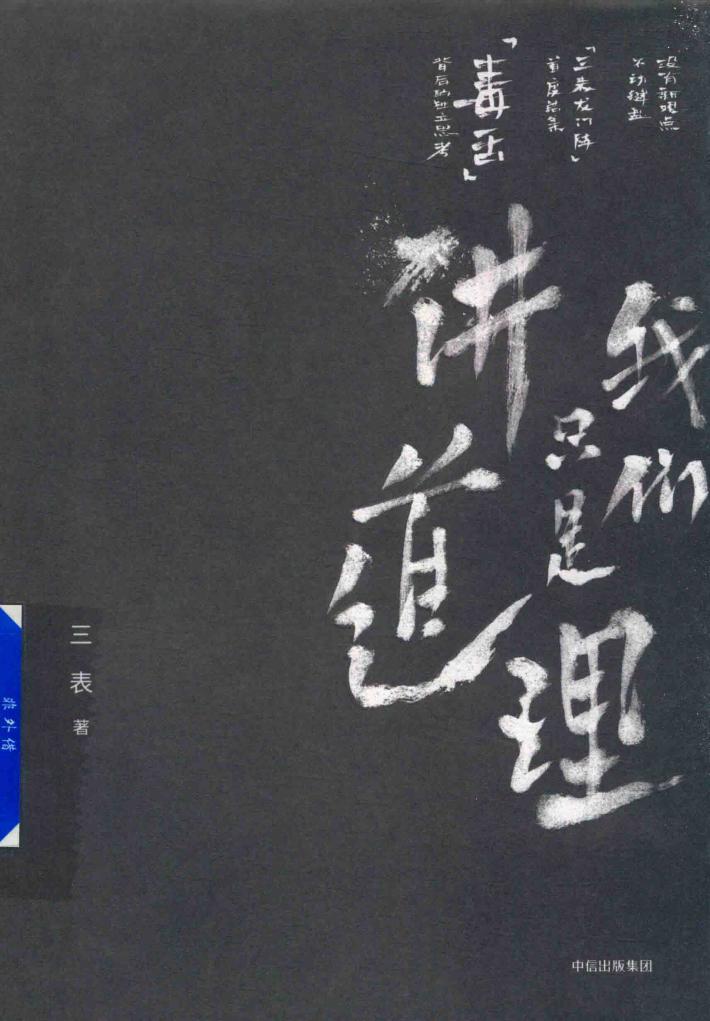 没有新观点
不动键盘
「三表龙门阵」
首度结集
「毒舌」
背后的独立思考
我们
只是
讲道理
三表 著
非外借
中信出版集团